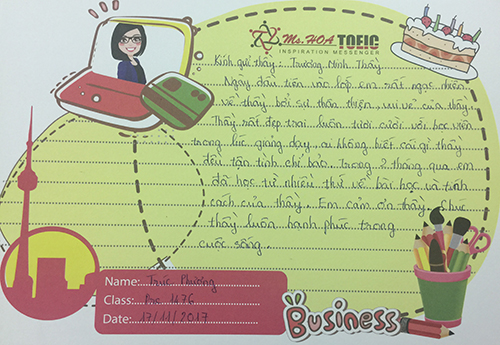 Ms.HOA TOEIC
INSPIRATION MESSENGER
Kính gửi thầy: Trương Minh Thầy
Ngày đầu tiên vào lớp em rất ngạc nhiên
về thầy bởi sự thân thiện, vui vẻ của thầy
Thầy rất đẹp trai luôn tươi cười với học viên
trong lúc giảng dạy, ai không biết cái gì thầy
đều tận tình chỉ bảo. Trong 2 tháng qua em
đã học từ nhiều thứ về bài học và tính
cách của thầy. Em cảm ơn thầy. Chúc
thầy luôn hạnh phúc trong
cuộc sống.
Name: Trúc Phương
Class: Pre 1176
Date: 17/11/2017
Business